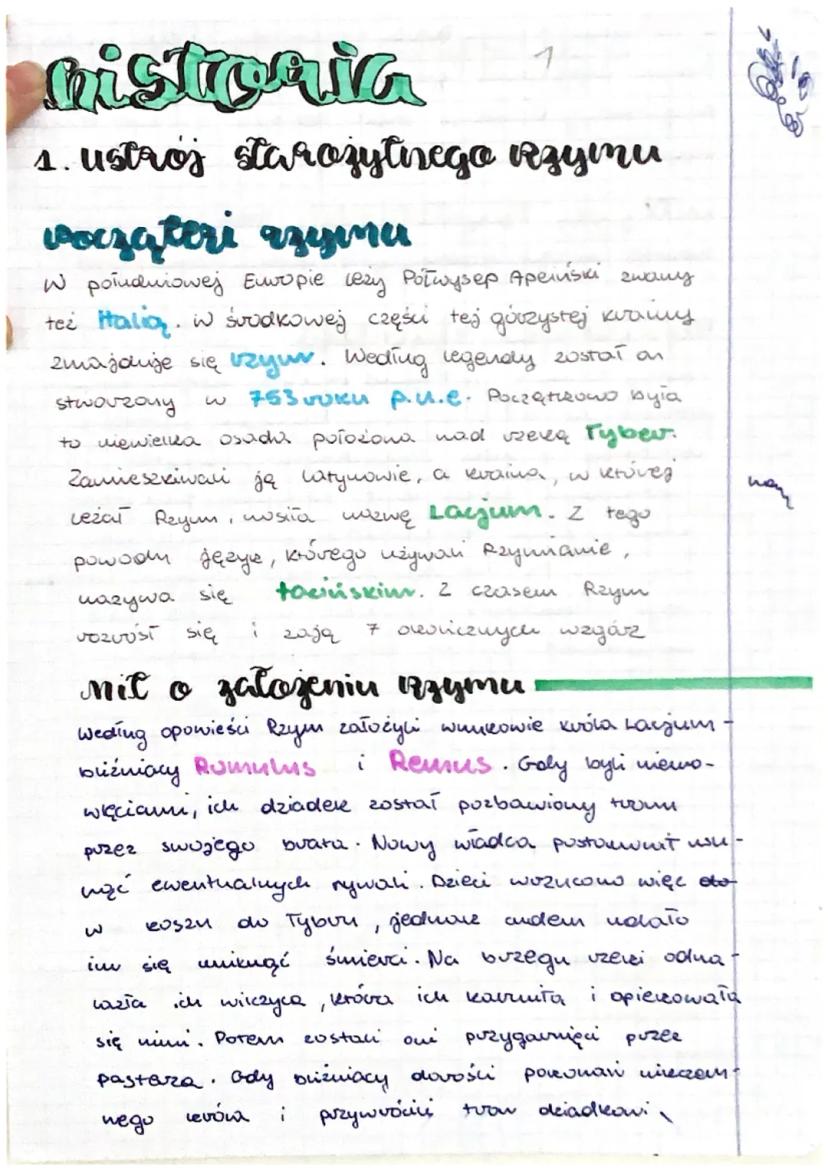 historia 1
1. ustrój starożytnego rzymu
początki rzymu
W południowej Europie leży Półwysep Apeniński zwany
też Italią. W środkowej części tej górzystej krainy
znajduje się rzym. Według legendy został on
stworzony w 753 roku p.n.e. Początkowo była
to niewielka osada położona nad rzeką Tyber.
Zamieszkiwali ją Latynowie, a kraina, w której
leżał Rzym, nosiła nazwę Lacjum. Z tego
powodu język, którego używali Rzymianie,
nazywa się łacińskim. Z czasem Rzym
rozrósł się i zają 7 okolicznych wzgórz
mit o założeniu rzymu
Według opowieści Rzym założyli wnukowie króla Lacjum -
bliźniacy Romulus i Remus. Gdy byli niemo-
wlęciami, ich dziadek został pozbawiony tronu
przez swojego brata. Nowy władca postanowił usu-
nąć ewentualnych rywali. Dzieci wrzucono więc do
w koszu do Tybru, jednak cudem udało
im się uniknąć śmierci. Na brzegu rzeki odna-
lazła ich wilczyca, która ich karmiła i opiekowała
się nimi. Potem zostali oni przygarnięci przez
pasterza. Gdy bliźniacy dorośli pokonali nieczem-
nego króla i przywrócili tron dziadkowi